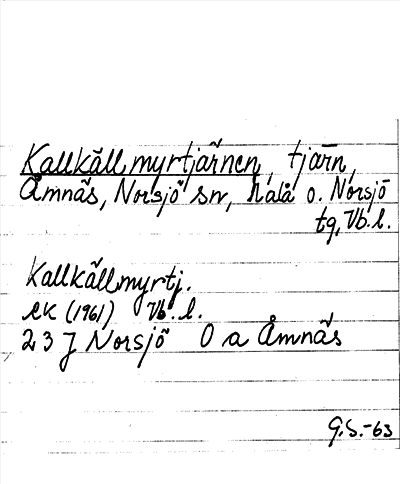 Kallkällmyrtjärnen, tjärn,
Åmnäs, Norsjö sn, Malå o. Norsjö
tg, Vb.l.
Kallkällmyrtj.
EK (1961) Vb.l.
23 J Norsjö 0 a Åmnäs
G.S.-63